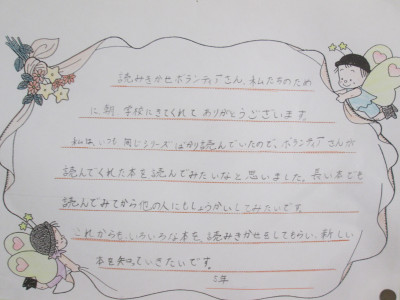 読みきかせボランティアさん、私たちのため
に、朝、学校にきてくれてありがとうございます。
私は、いつも同じシリーズばかり読んでいたので、ボランティアさんが
読んでくれた本を読んでみたいなと思いました。長い本でも
読んでみてから他の人にもしょうかいしてみたいです。
これからもいろいろな本を、読みきかせをしてもらい、新しい
本を知っていきたいです。
5年